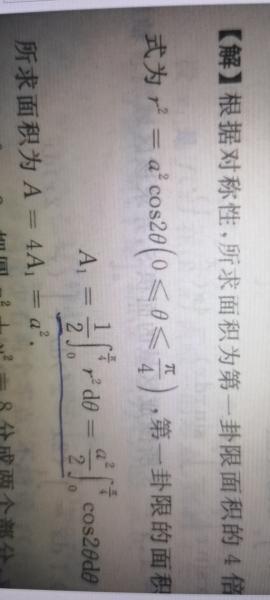 【解】根据对称性,所求面积为第一卦限面积的4倍
式为 r² = a²cos2θ(0 ≤ θ ≤ π/4),第一卦限的面积
A₁ = 1/2 ∫₀^{π/4} r²dθ = a²/2 ∫₀^{π/4} cos2θdθ
所求面积为 A = 4A₁ = a².
= 8分成两个部分